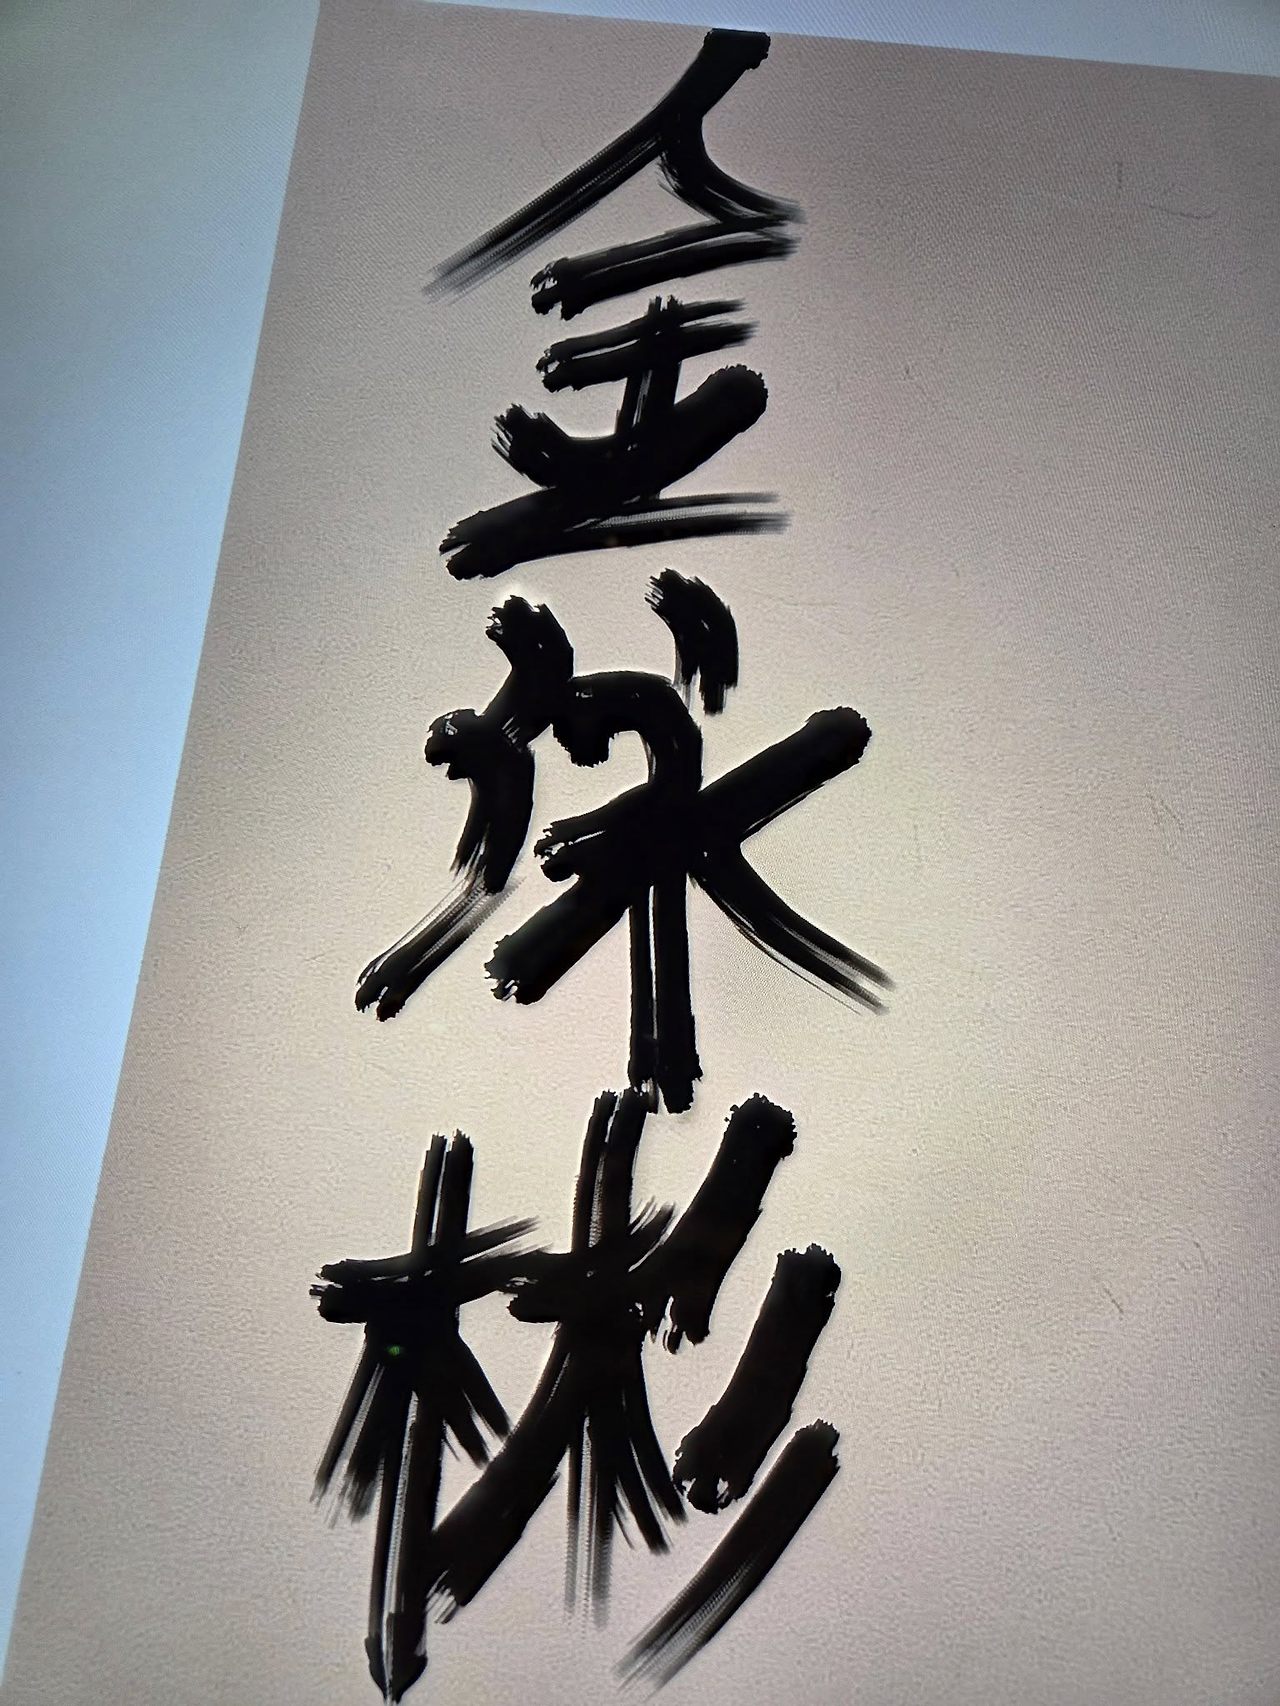 金泳彬